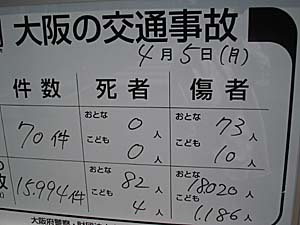 大阪の交通事故
4月5日(月)
件数 死者 傷者
70件 おとな 0人 こども 0人 おとな 73人 こども 10人
15994件 おとな 82人 こども 4人 おとな 18020人 こども 1,186人
大阪府警察・財団法人